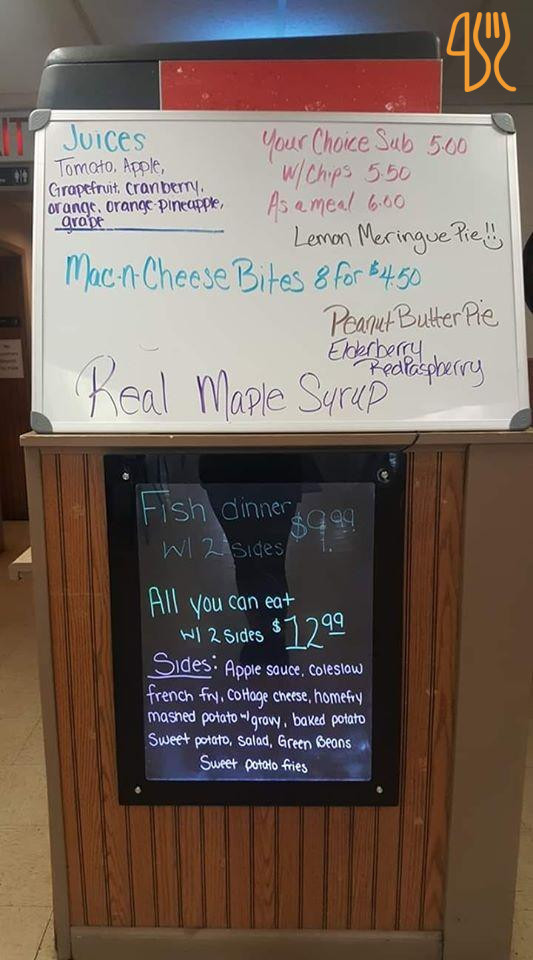 IT
Juices
Tomato, Apple,
Grapefruit, Cranberry,
orange, orange-pineapple,
grape
Your Choice Sub 5.00
W/Chips 5.50
As a meal 6.00
Lemon Meringue Pie!!
Mac-n-Cheese Bites 8 for $4.50
Peanut Butter Pie
Elderberry
Red Raspberry
Real Maple Syrup
Fish dinner $9.99
W/ 2 sides
All you can eat
w/ 2 sides $12.99
Sides: Apple sauce, coleslaw
french fry, cottage cheese, homefry
mashed potato w/ gravy, baked potato
Sweet potato, salad, Green Beans
Sweet potato fries